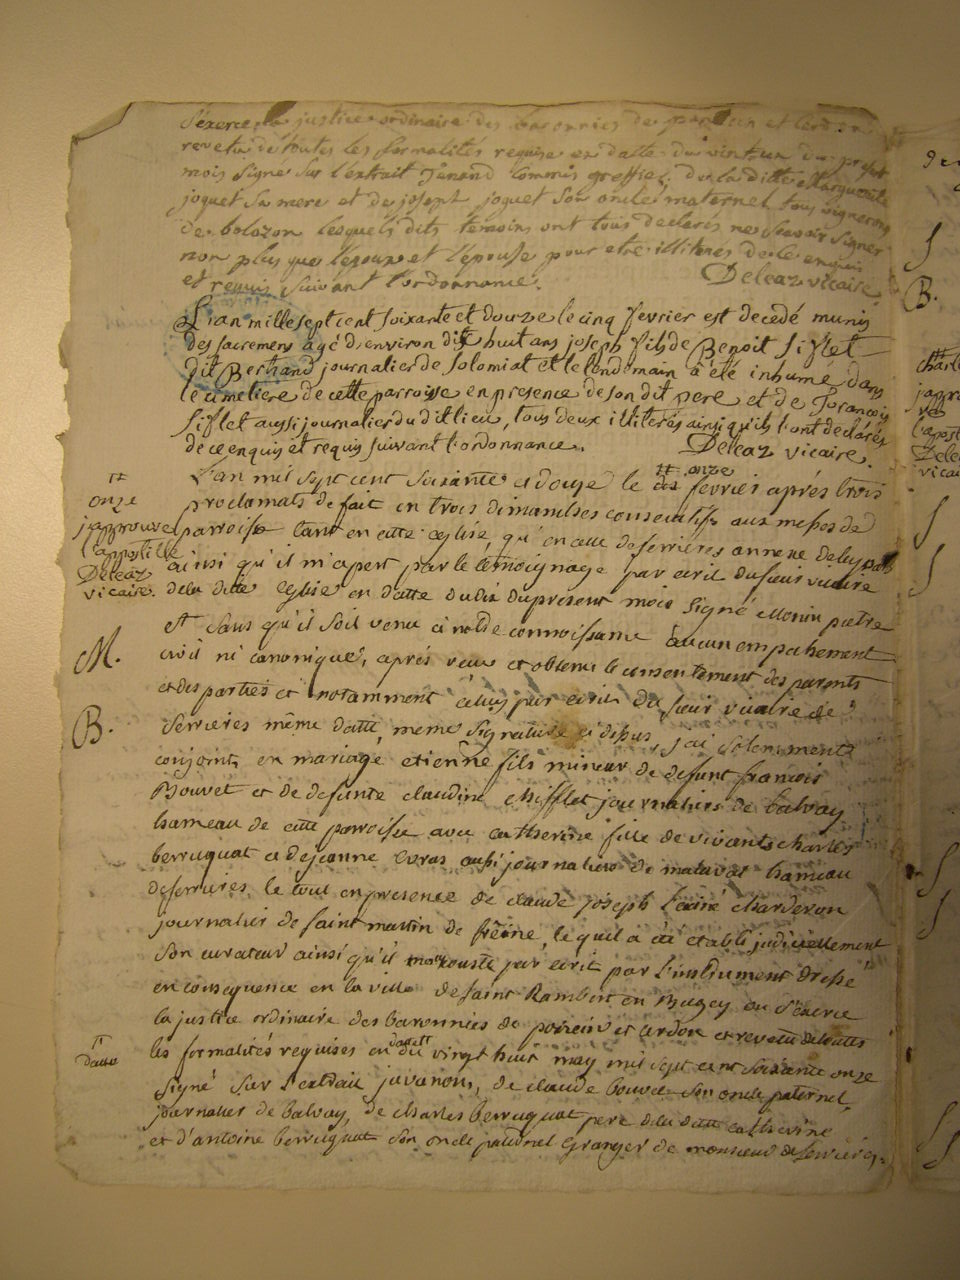 s'exerce la justice ordinaire des baronnies de et
revetu de toutes les formalités requise en datte du vint un du present
mois signé sur l'extrait Janand Commis greffier, de la ditte Marguerite
joguet sa mere et de joseph joguet son oncle maternel tous vignerons
de bolozon lesquels dits temoins ont tous declarés ne scavoir signer
non plus que l'epoux et l'epouse pour etre illiteres de ce enquis
et requis suivant l'ordonnance. Deleaz vicaire.
L'an mille sept cent soixante et douze le cinq fevrier est decedé munis
des sacremens agé d'environ dix huit ans joseph fils de Benoit Siflet
dit Bertrand journalier de Solomiat et le lendemain a été inhumé dans
le cimetiere de cette parroisse en presence de son dit pere et de Francois
Siflet aussi journalier du dit lieu, tous deux illiterés ainsi qu'ils l'ont declarés
de ce enquis et requis suivant l'ordonnance. Deleaz vicaire.
L'an mil sept cent soixante et douze le onze fevrier aprés trois
onze
proclamats de fait en trois dimanches consecutifs aux messes de
j'approuve
parroisse tant en cette eglise, qu'en celle de serrières annexe de
l'appostille
ainsi qu'il m'apert par le temoignage par ecrit du sieur vicaire
Deleaz
vicaire.
de la ditte eglise en datte du dix du present mois signé Monin pretre
et sans qu'il soit venu à notre connoissance aucun empechement
M.
civil ni canonique, aprés veue et obtenu le consentement des parents
et des parties et notamment celuy par ecrit du sieur vicaire de
B.
serrieres même datte, meme signature ci dessus, j'ai solennement
conjoint en mariage etienne fils mineur de defunt francois
Bouvet et de defunte claudine chifflet journaliers de balvay
hameau de cette parroisse avec catherine fille de vivants charles
berruquat et de jeanne evras aussi journaliers de hameau
de serrieres. le tout en presence de claude joseph charderon
journalier de saint martin de frêne, lequel a été etabli judiciellement
son curateur ainsi qu'il par ecrit par l'instrument dressé
en consequence en la ville de saint Rambert en Bugey ou s'exerce
la justice ordinaire des baronnies de et revetu de toutes
datte
les formalités requises en datte du vingt huit may mil sept cent soixante onze
signé sur l'extrait, de claude bouvet son oncle paternel,
journalier de balvay, de charles berruquat pere de la ditte catherine
et d'antoine berruquat son oncle paternel Granger de monsieur de serrieres.